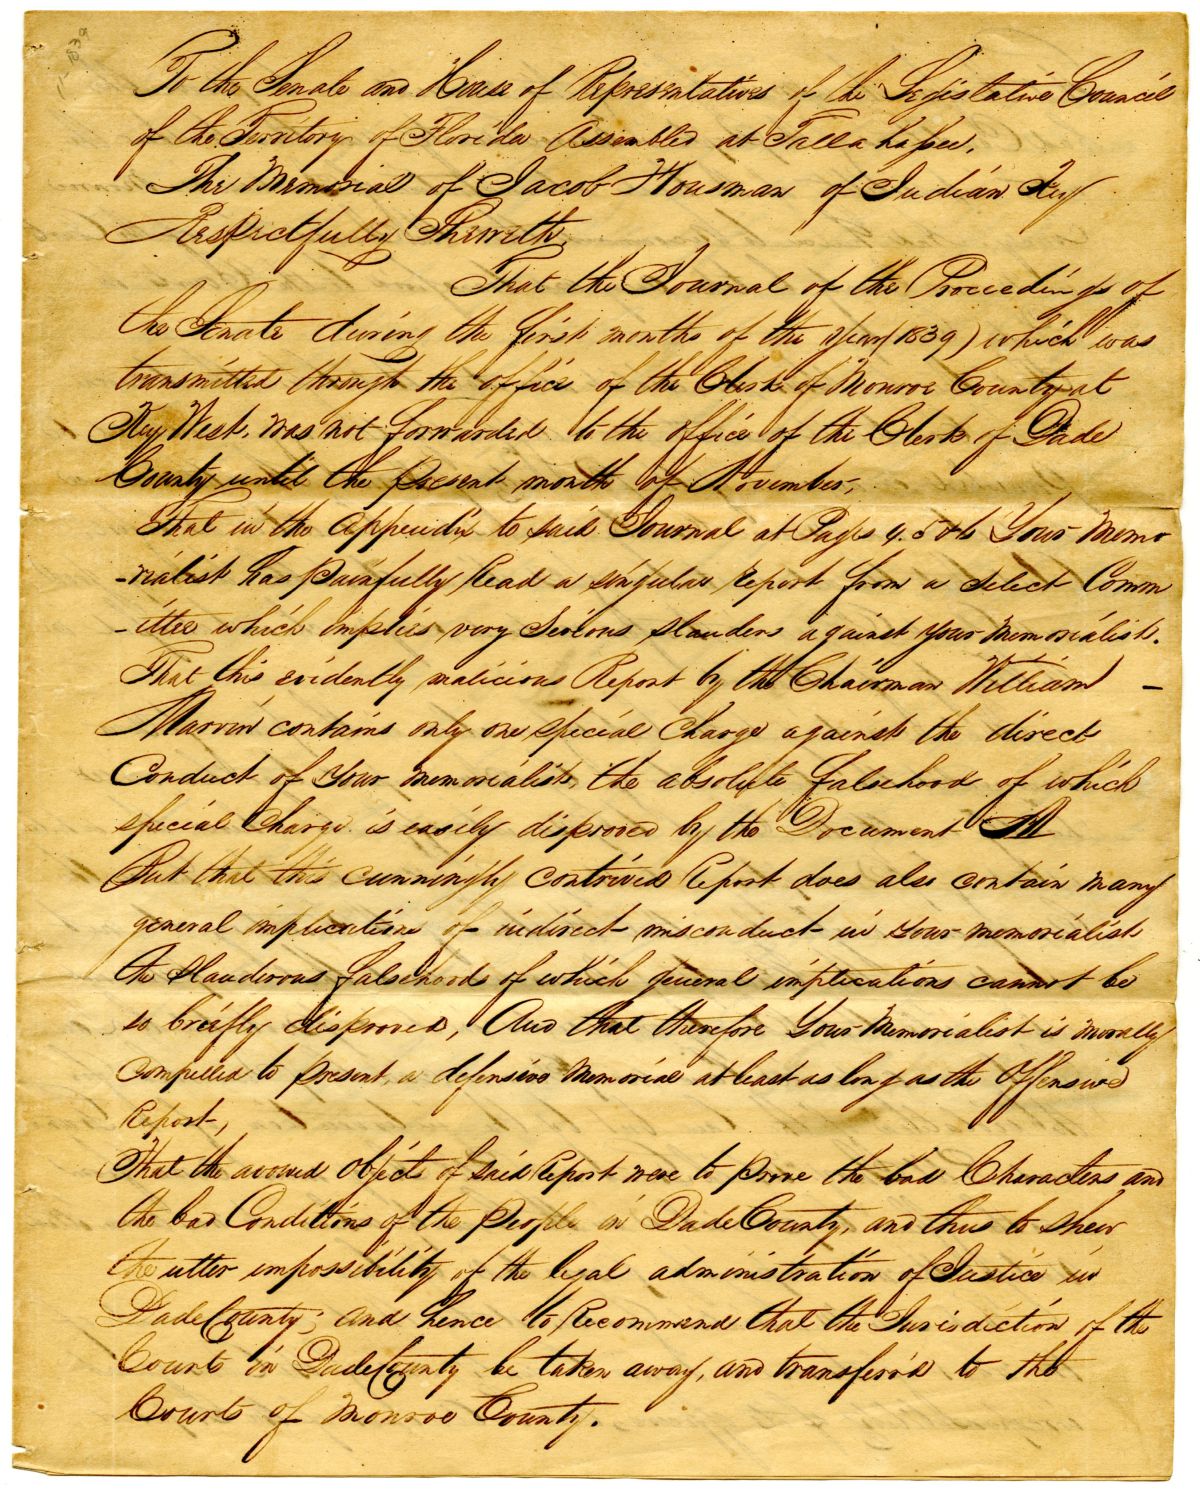 1839
To the Senate and House of Representatives of the Legislative Council
of the Territory of Florida Assembled at Tallahassee.
The Memorial of Jacob Housman of Indian Key
Respectfully Sheweth,
That the Journal of the Proceedings of
the Senate during the first months of the year (1839) which was
transmitted through the office of the Clerk of Monroe County at
Key West, was not forwarded to the office of the Clerk of Dade
County until the present month of November,
That in the Appendix to said Journal at Pages 4. 5 & 6 Your Memo
-rialist has painfully Read a singular Report from a Select Comm
-ittee which implies very Serious slanders against your Memorialist.
That this evidently malicious Report by the Chairman William –
Marvin contains only one special Charge against the direct
Conduct of your Memorialist, the absolute falsehood of which
special Charge is easily disproved by the Document A
But that this cunningly contrived Report does also contain many
general implications of indirect misconduct in your memorialist
the slanderous falsehoods of which general implications cannot be
so briefly disproved, And that therefore Your Memorialist is morally
compelled to present, a defensive Memorial at least as long as the Offensive
Report,
That the avowed Objects of said Report were to prove the bad Characters and
the bad Conditions of the People in Dade County, and thus to shew
the utter impossibility of the legal administration of Justice in
Dade County; and hence to Recommend that the Jurisdiction of the
Courts in Dade County be taken away, and transfer'd to the
Courts of Monroe County.